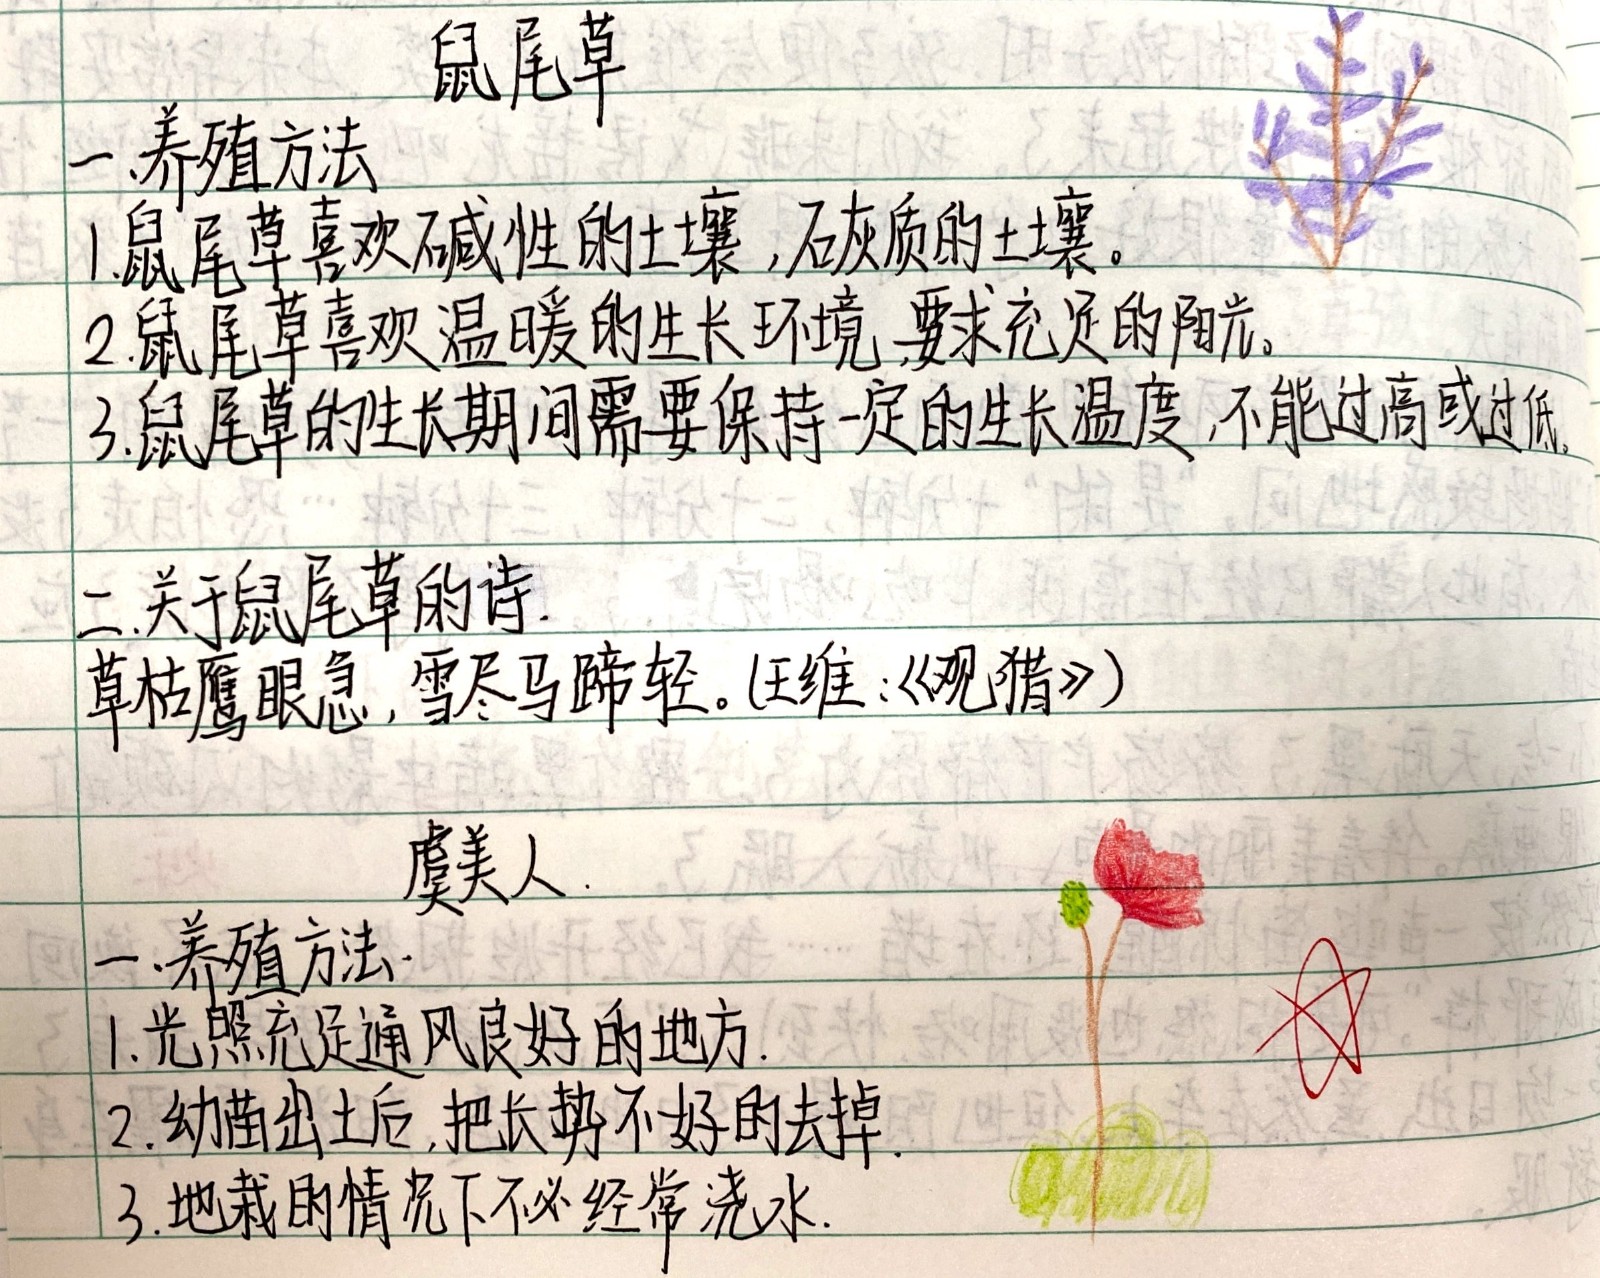 鼠尾草
一.养殖方法
1.鼠尾草喜欢碱性的土壤,石灰质的土壤。
2.鼠尾草喜欢温暖的生长环境,要求充足的阳光。
3.鼠尾草的生长期间需要保持一定的生长温度,不能过高或过低.
二.关于鼠尾草的诗.
草枯鹰眼急,雪尽马蹄轻。(王维:《观猎》)
虞美人.
一.养殖方法.
1.光照充足通风良好的地方.
2.幼苗出土后,把长势不好的去掉.
3.地栽的情况下不必经常浇水.